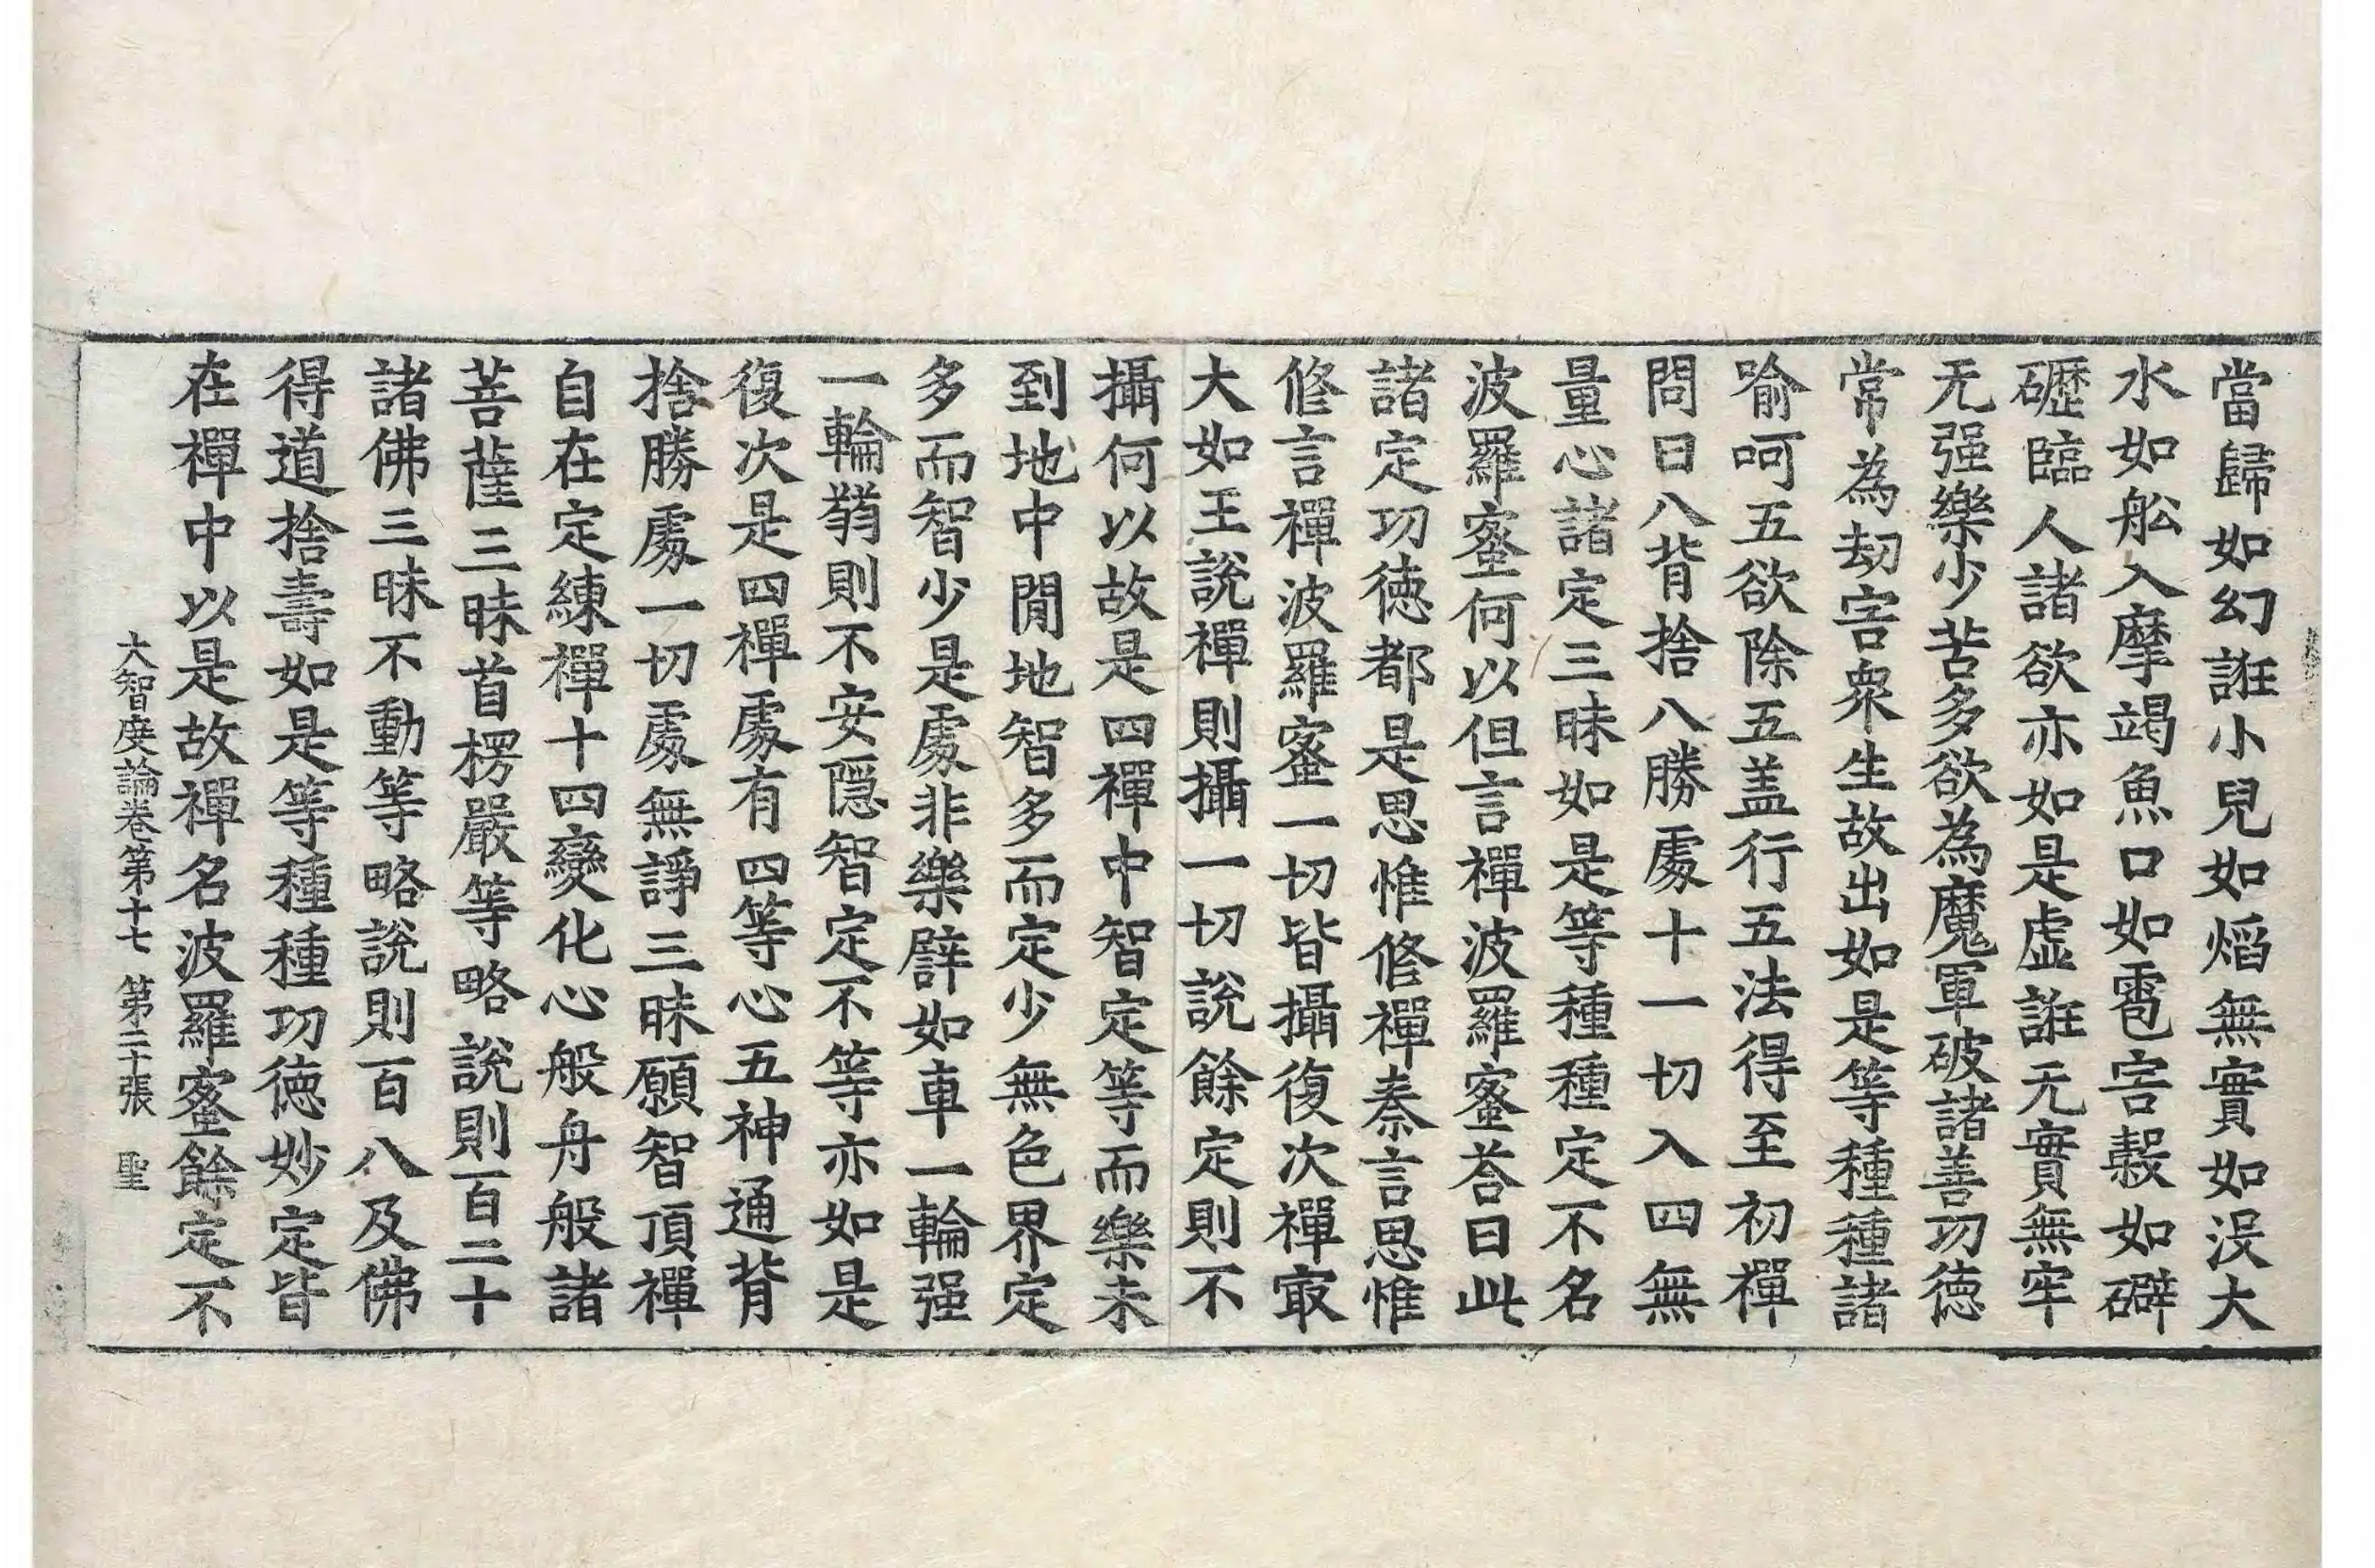 當歸如幻誑小兒如熖無實如没大
水如舩入摩竭魚口如雹害穀如礔
礰臨人諸欲亦如是虛誑无實無牢
无强樂少苦多欲為魔軍破諸善功徳
常為劫害衆生故出如是等種種諸
喻呵五欲除五盖行五法得至初禪
問曰八背捨八勝處十一切入四無
量心諸定三昧如是等種種定不名
波羅蜜何以但言禪波羅蜜荅曰此
諸定功徳都是思惟修禪秦言思惟
修言禪波羅蜜一切皆攝復次禪㝡
大如王說禪則攝一切說餘定則不
攝何以故是四禪中智定等而樂未
到地中閒地智多而定少無色界定
多而智少是處非樂辟如車一輪强
一輪蒻則不安隱智定不等亦如是
復次是四禪處有四等心五神通背
捨勝處一切處無諍三昧願智頂禪
自在定練禪十四變化心般舟般諸
菩薩三昧首楞嚴等略說則百二十
諸佛三昧不動等略說則百八及佛
得道捨壽如是等種種功徳妙定皆
在禪中以是故禪名波羅蜜餘定不
大智度論卷第十七 第二十張 聖